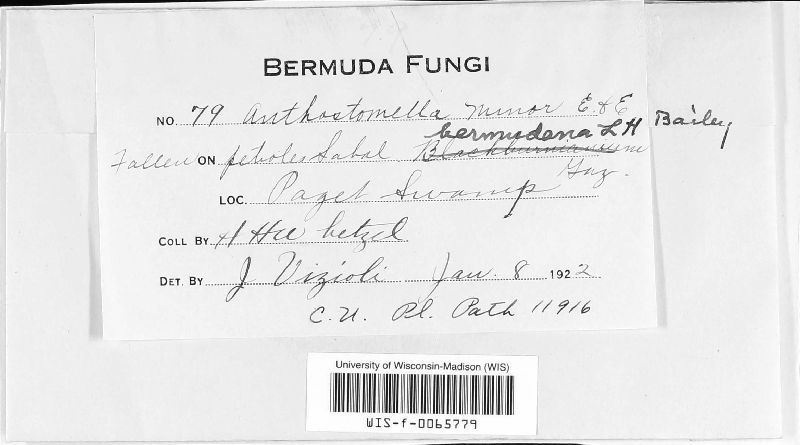 BERMUDA FUNGI
NO. 79 Anthostomella minor E. & E
bermudana L H Bailey
Fallen ON petioles Sabal Blackburnianum
LOC. Paget Swamp
COLL BY H H Whetzel
DET. BY J Vizioli Jan. 8 1922
C.U. Pl. Path 11916
University of Wisconsin-Madison (WIS)
WIS-f-0065779